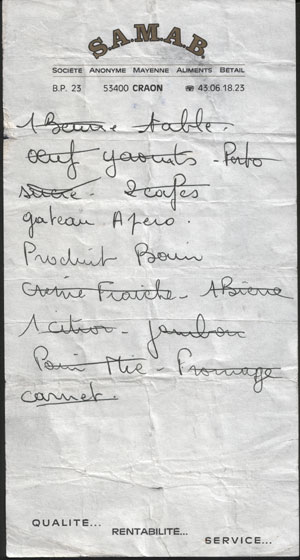 S.A.M.A.B.
SOCIETE ANONYME MAYENNE ALIMENTS BETAIL
B.P. 23 53400 CRAON ☎ 43.06.18.23
1 Beurre table.
œuf yaourts - Porto
sucre. 2 cafés
gateau Apero.
Produit Bain
Crème Fraiche - 1 Bière
1 citron - jambon
Pain Mie - Fromage
carnet.
QUALITE...
RENTABILITE...
SERVICE...